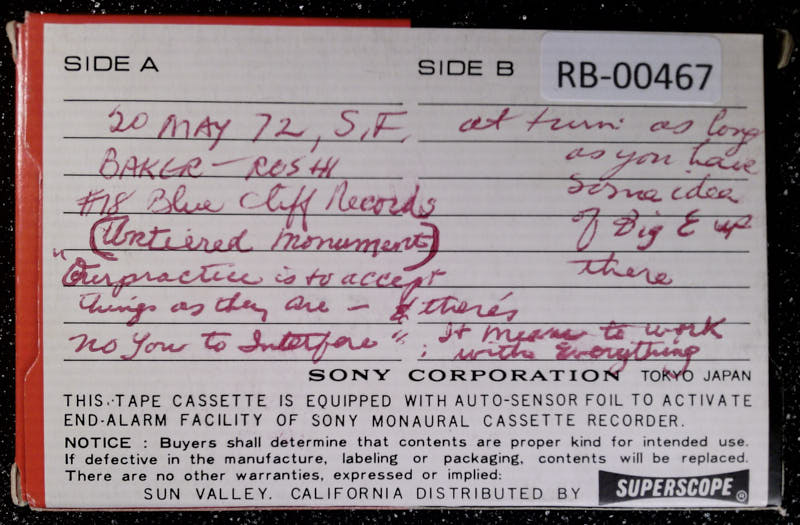 SIDE A
20 MAY 72, S.F.
BAKER - ROSHI
#18 Blue Cliff Records
(Untiered Monument)
"Our practice is to accept
things as they are - & there's
no You to Interfere"
SIDE B
RB-00467
at turn: as long
as you have
some idea
of Big E up
there
It means to work
with Everything
SONY CORPORATION TOKYO JAPAN
THIS TAPE CASSETTE IS EQUIPPED WITH AUTO-SENSOR FOIL TO ACTIVATE
END-ALARM FACILITY OF SONY MONAURAL CASSETTE RECORDER.
NOTICE : Buyers shall determine that contents are proper kind for intended use.
If defective in the manufacture, labeling or packaging, contents will be replaced.
There are no other warranties, expressed or implied:
SUN VALLEY. CALIFORNIA DISTRIBUTED BY SUPERSCOPE®